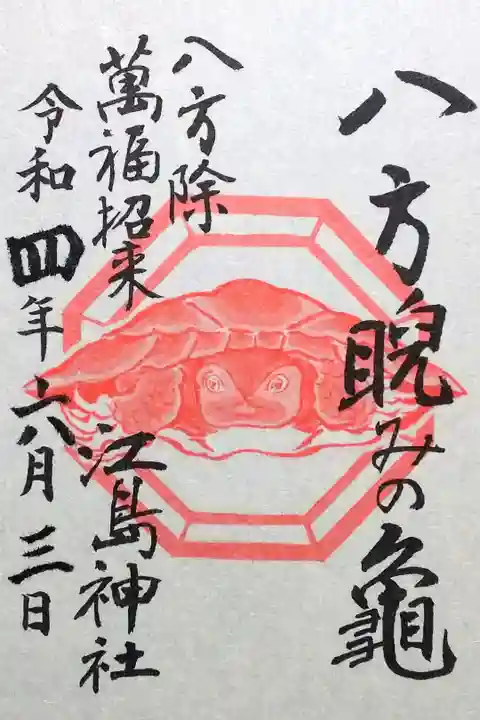 八方睨みの亀
八方除
萬福招来
江島神社
令和四年六月三日